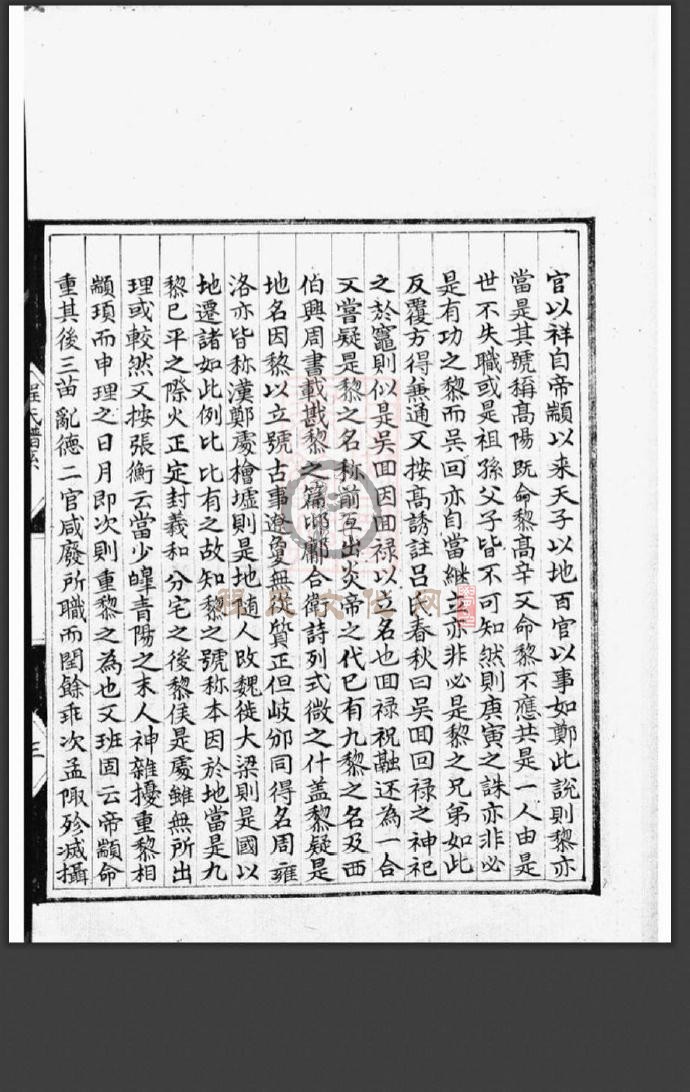 官以祥自帝顓以来天子以地百官以事如鄭此說則黎亦
當是其號稱髙陽既命黎髙辛又命黎不應共是一人由是
世不失職或是祖孫父子皆不可知然則庚寅之誅亦非必
是有功之黎而吴回亦自當継之亦非必是黎之兄弟如此
反覆方得無通又按髙誘註吕氏春秋曰吴囬囬禄之神祀
之於竈則似是吴囬因囬禄以立名也囬禄祝融还為一合
又嘗疑是黎之名称前互出炎帝之代已有九黎之名及西
伯興周書載戡黎之篇邶鄘合衛詩列式微之什盖黎疑是
地名因黎以立號古事遼敻無質正但岐邠同得名周雍
洛亦皆称漢鄭處檜墟則是地随人改魏徙大梁則是國以
地遷諸如此例比比有之故知黎之號称本因於地當是九
黎已平之際火正定封義和分宅之後黎侯是處雖無所出
理或較然又按張衡云當少皥青陽之末人神雜擾重黎相
顓頊而申理之日月即次則重黎之為也又班固云帝顓命
重其後三苗亂德二官咸廢所職而閏餘乖次孟陬殄滅攝
程氏譜系
三
程氏文化网